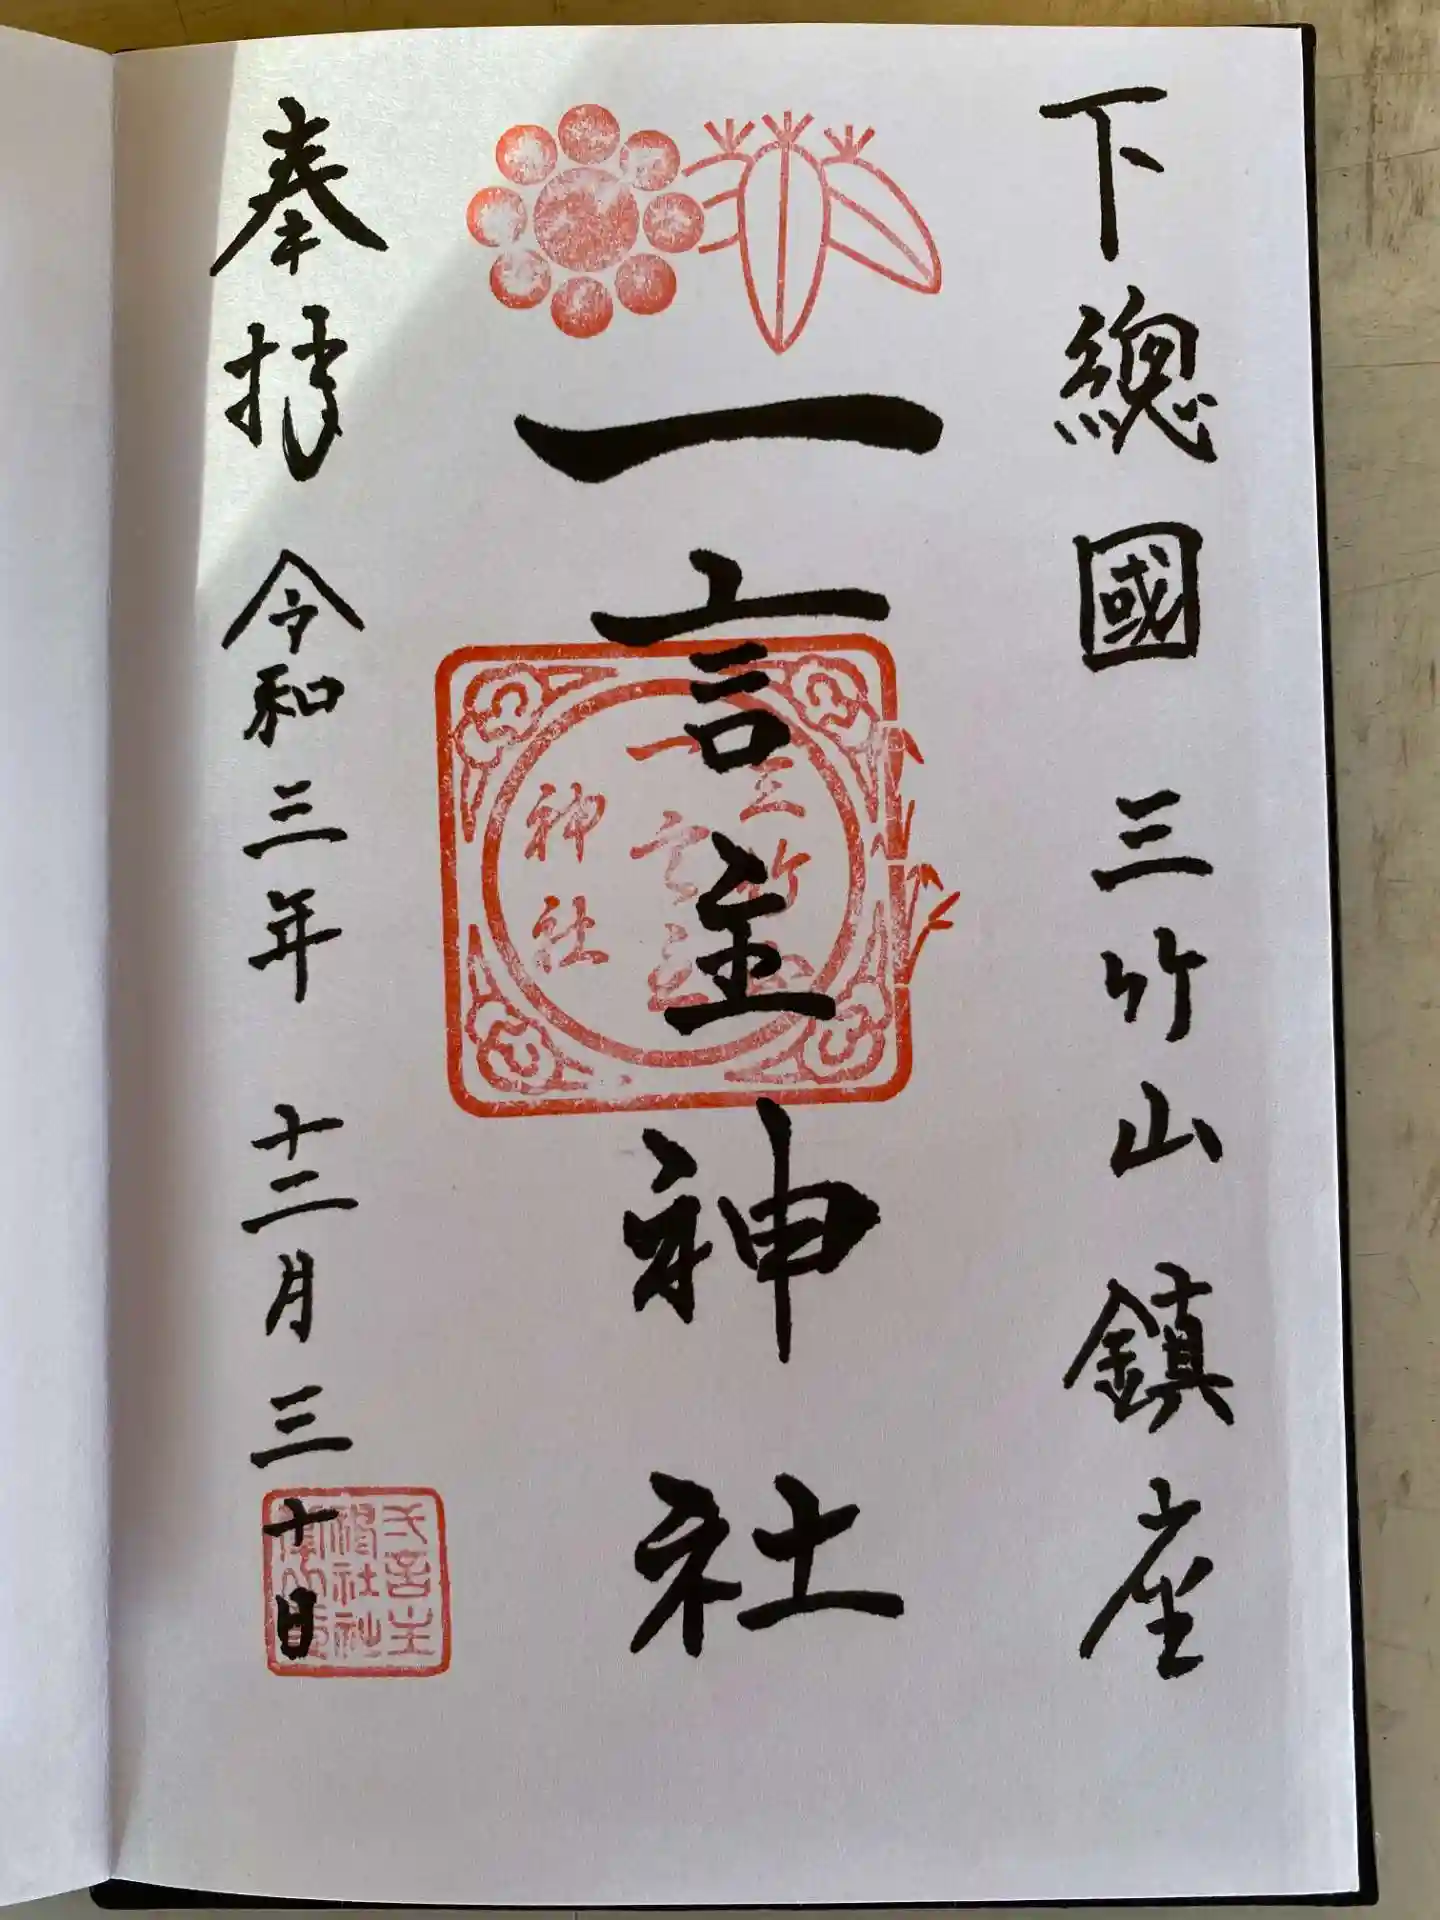 下總國三竹山鎮座
一言主神社
三竹山
一言主
神社
奉拝 令和三年 十二月三十日